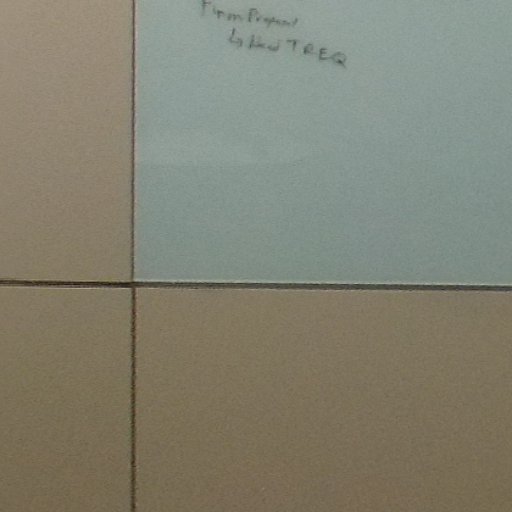 Firm Proposal
↳ Need TREQ